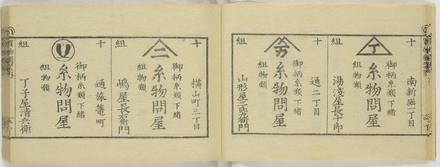 十
組
南新堀一丁目
御柄糸類下緒
糸物問屋
組物類
湯浅屋長十郎
十
組
通二丁目
御柄糸類下緒
糸物問屋
組物類
十
組
横山町三丁目
御柄糸類下緒
糸物問屋
組物類
嶋屋長右衛門
十
組
通旅籠町
御柄糸類下緒
糸物問屋
組物類
丁子屋清兵衛